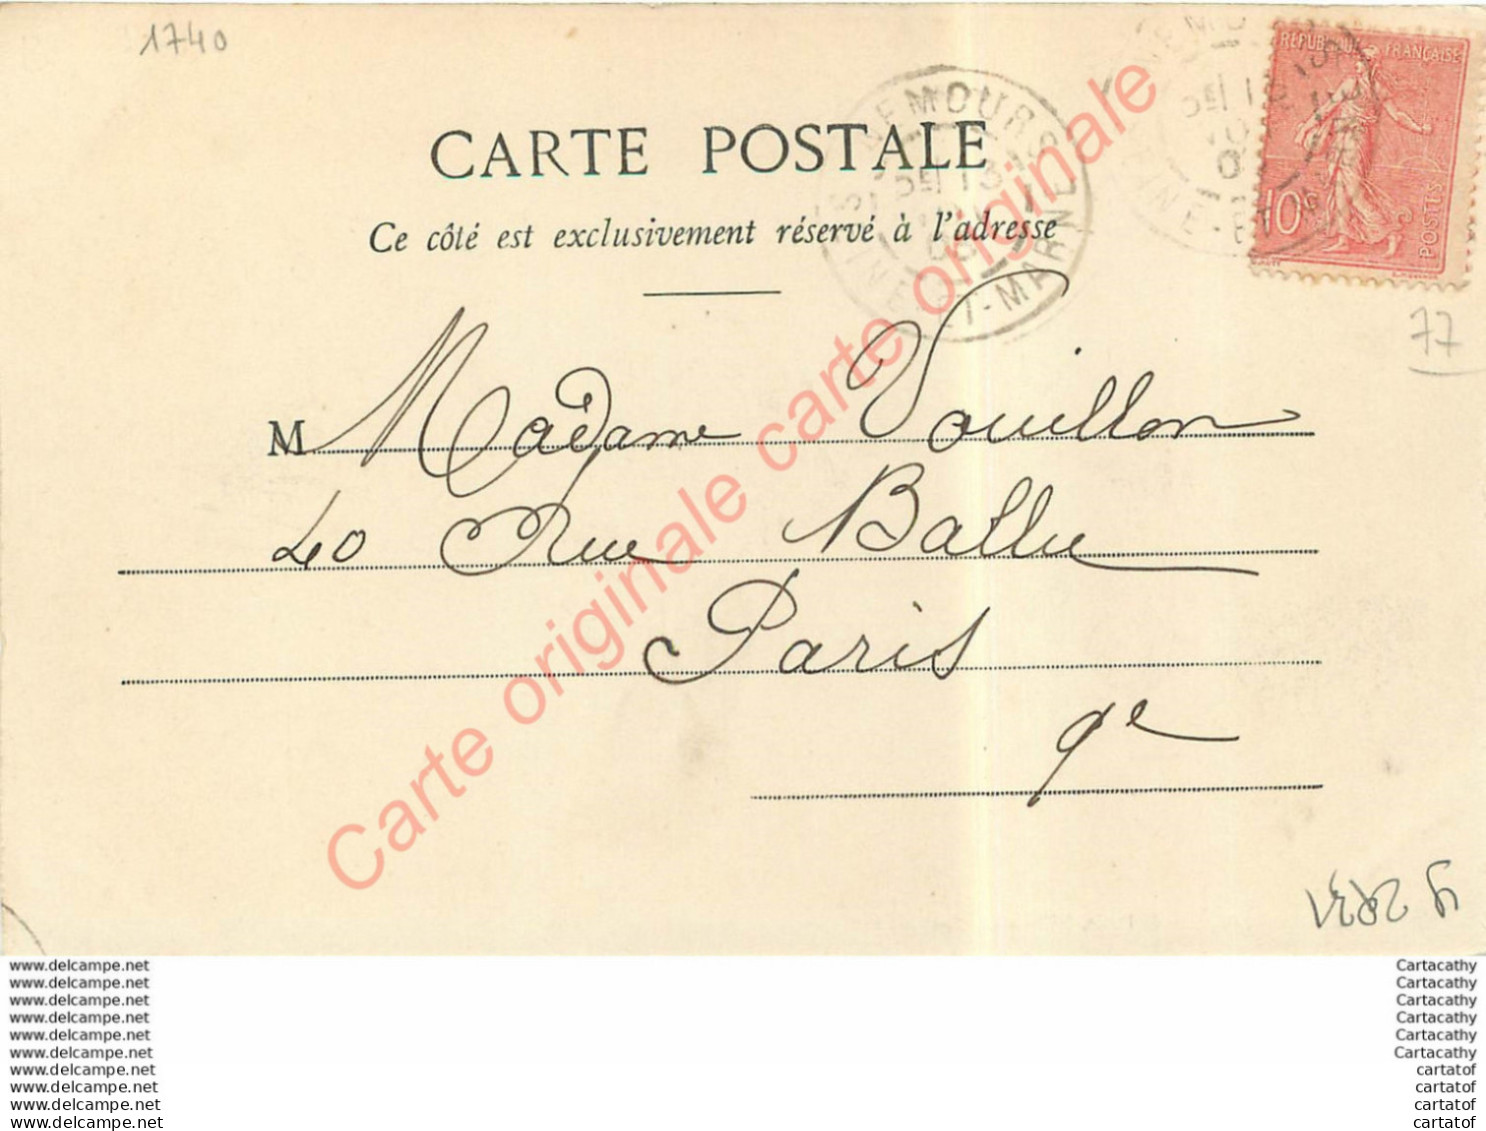 1740
REPUBLIQUE FRANÇAISE
10
POSTES
NEMOURS
ET-MARNE
CARTE POSTALE
Ce côté est exclusivement réservé à l'adresse
77
M Madame Vouillon
40 Rue Ballu
Paris
9e
Carte originale carte originale
www.delcampe.net
www.delcampe.net
www.delcampe.net
www.delcampe.net
www.delcampe.net
www.delcampe.net
www.delcampe.net
www.delcampe.net
www.delcampe.net
www.delcampe.net
Cartacathy
Cartacathy
Cartacathy
Cartacathy
Cartacathy
Cartacathy
cartatof
cartatof
cartatof
cartatof